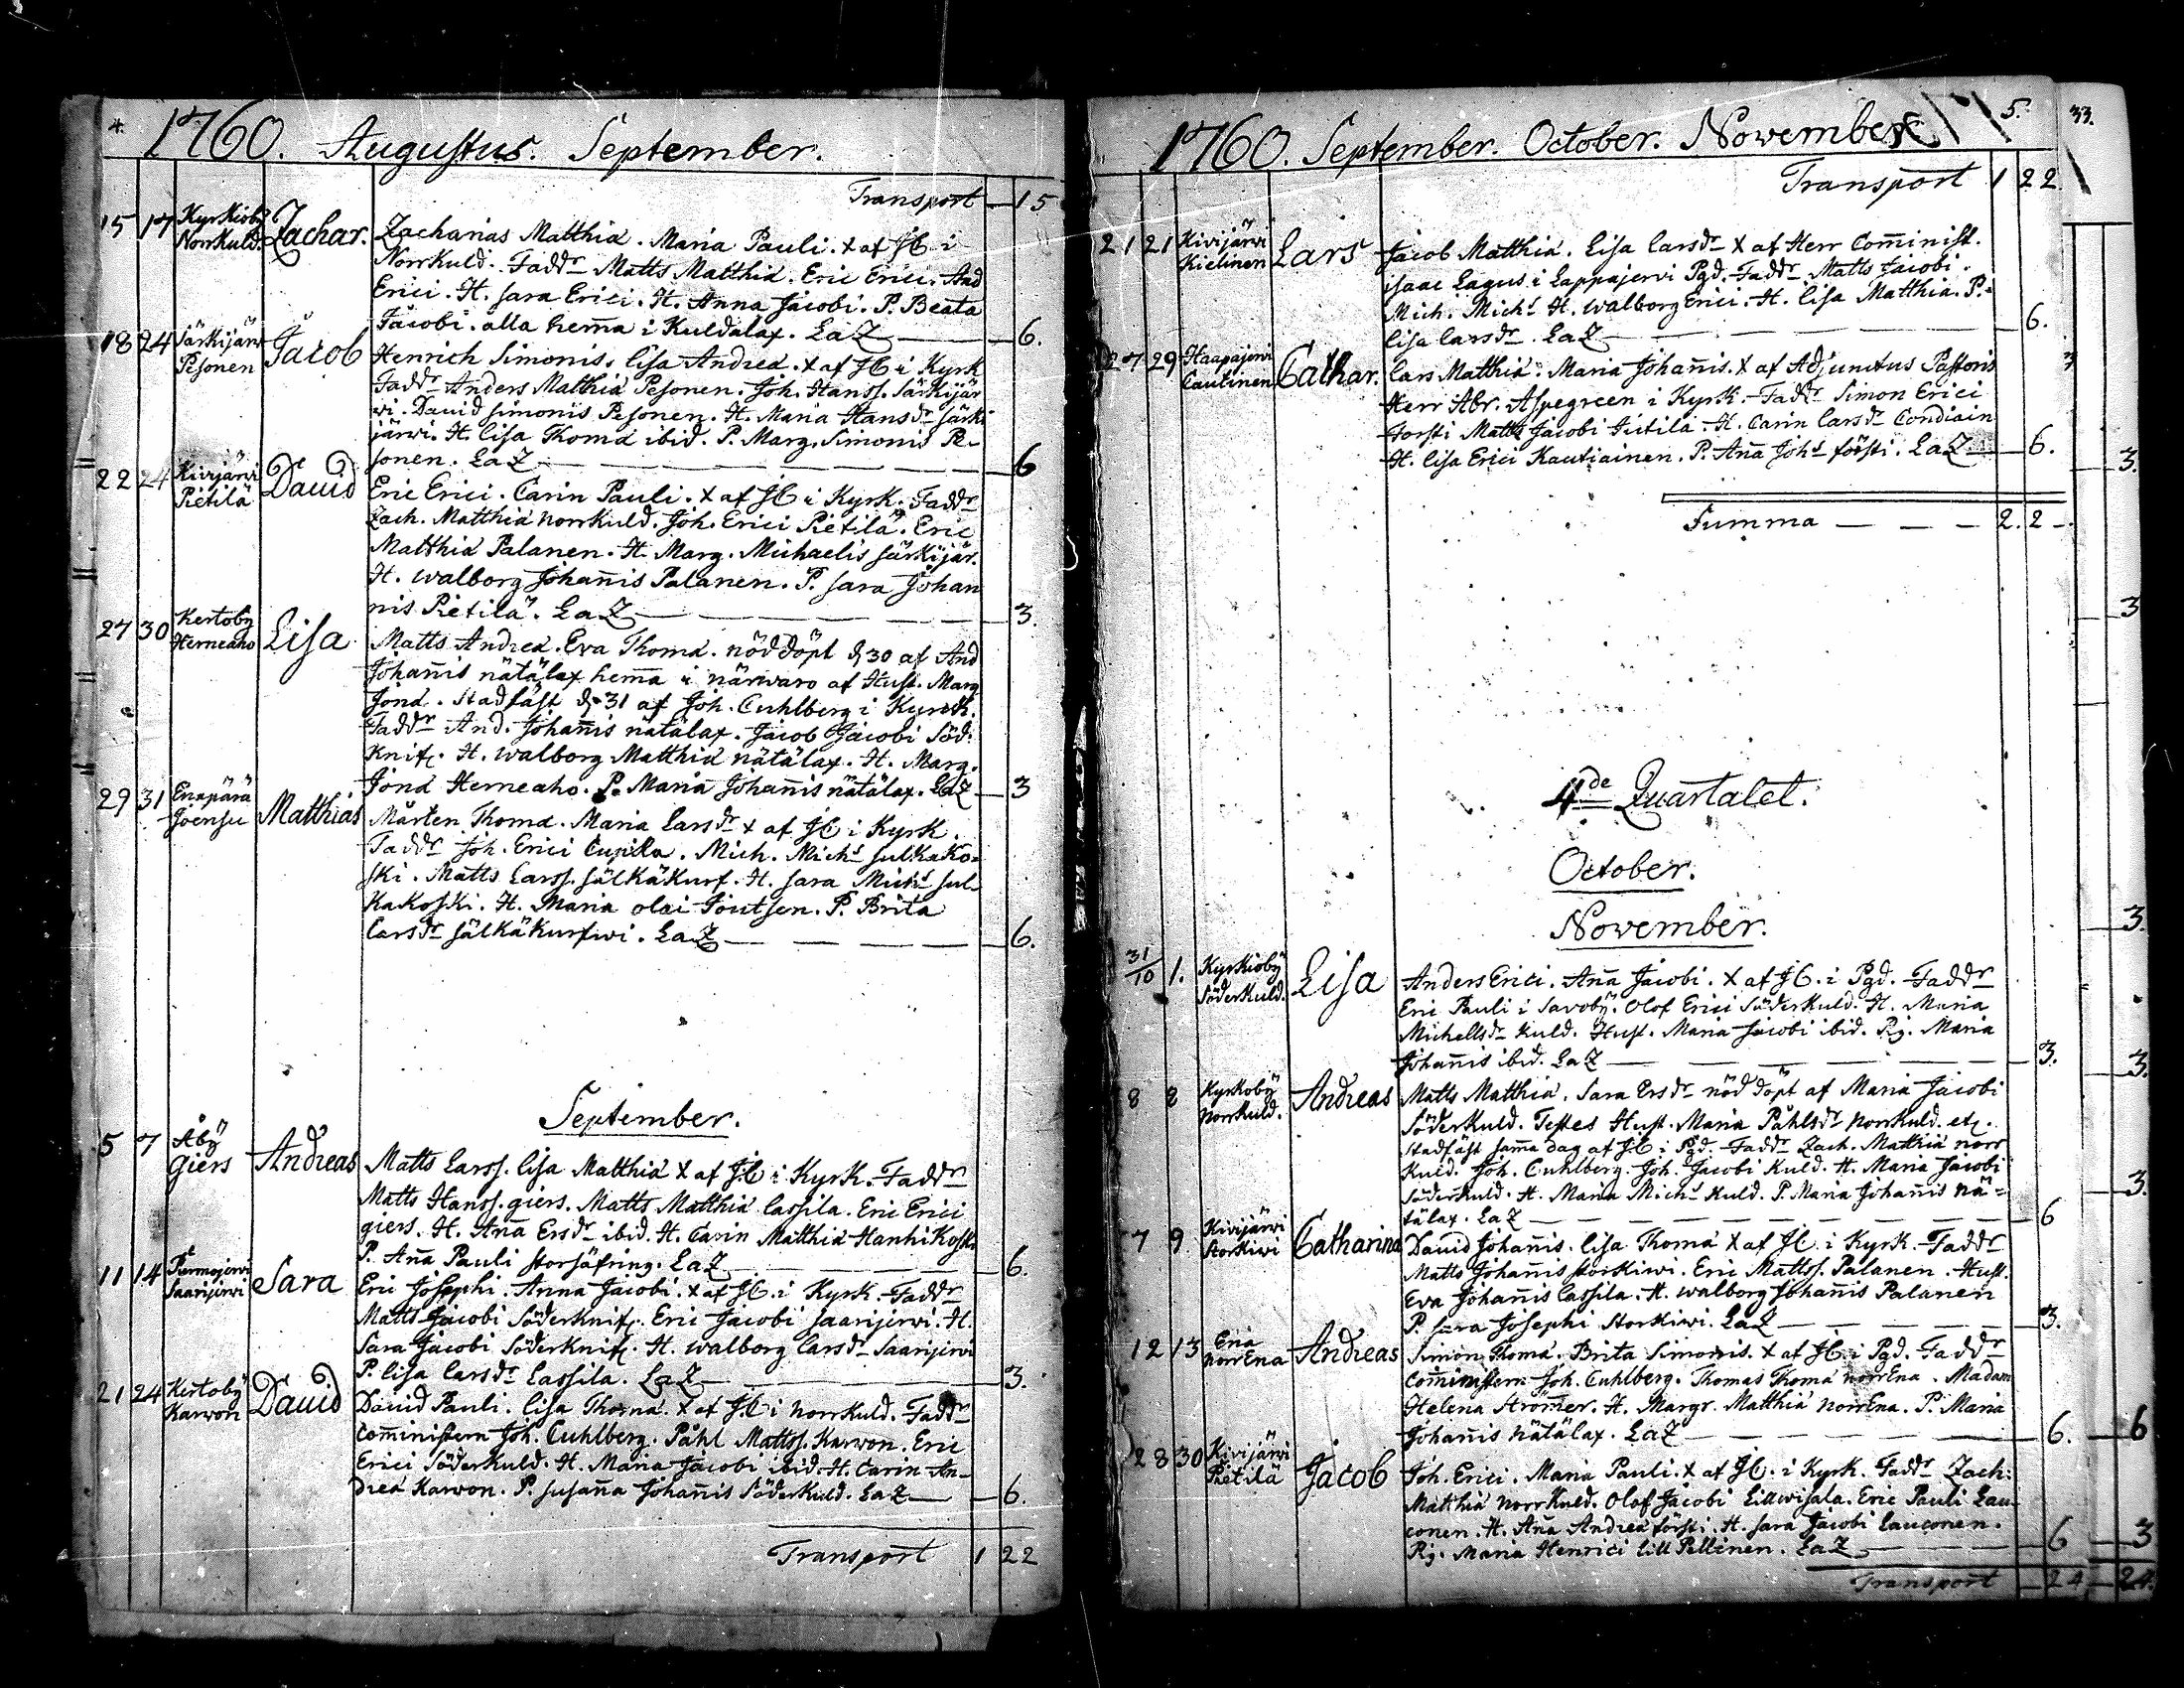 4.
1760. Augustus. September.
Transport — 15
15 17 Kyrkioby Norrkuld. Zachar. Zacharias Matthiæ. Maria Pauli. X af JC i
Norrkuld. Faddr Matts Matthiæ. Eric Erici. And
Erici. H. Sara Erici. H. Anna Jacobi. P. Beata
Jacobi. alla hem̄a i Kuldalax. LaZ — 6.
18 24 Särkijärvi Pesonen Jacob Henrich Simonis. Lisa Andreæ. X af JC i Kyrk
Faddr Anders Matthiæ Pesonen. Joh. Hanss. Särkijär
vi. David Simonis Pesonen. H. Maria Hansdr Särki
järwi. H. Lisa Thomæ ibid. P. Marg. Simonis Pe-
sonen. LaZ — 6
22 24 Kivijärvi Pietilä David Eric Erici. Carin Pauli. X af JC i Kyrk. Faddr
Zach. Matthiæ Norrkuld. Joh. Erici Pietilä. Eric
Matthiæ Palanen. H. Marg. Michaelis Särkijär.
H. Walborg Johan̄is Palanen. P. Sara Johan
nis Pietilä. LaZ — 3.
27 30 Kertoby Herneaho Lisa Matts Andreæ. Eva Thomæ. nöddöpt d. 30 af And
Johan̄is nätälax hem̄a i närwaro af Hust. Marg
Jonæ. Stadfäst d. 31 af Joh. Cuhlberg i Kyrck.
Faddr And. Johan̄is nätälax. Jacob Jacobi Söd.
Knif. H. Walborg Matthiæ nätälax. H. Marg.
Jonæ Herneaho. P. Maria Johan̄is nätälax. LaZ — 3
29 31 Enapärä Joensu Matthias Mårten Thomæ. Maria Larsdr X af JC i Kyrk.
Faddr Joh. Erici . Mich. Michs Sulkako-
ski. Matts Larss. Sälkäkurf. H. Sara Michs Sul-
kakoski. H. Maria Olai Joutsen. P. Brita
Larsdr Sälkäkurfwi. LaZ — 6.
September.
5 7 Åby Giers Andreas Matts Larss. Lisa Matthiæ X af JC i Kyrk. Faddr
Matts Hanss. giers. Matts Matthiæ Lassila. Eric Erici
giers. H. An̄a Ersdr ibid. H. Carin Matthiæ Hanhikoski
P. An̄a Pauli Storsäfring. LaZ — 6.
11 14 Purmojerwi Saarijerwi Sara Eric Josephi. Anna Jacobi. X af JC i Kyrk. Faddr
Matts Jacobi Söderknif. Eric Jacobi Saarijerwi. H.
Sara Jacobi Söderknif. H. Walborg Larsdr Saarijerwi
P. Lisa Larsdr Lassila. LaZ — 3.
21 24 Kertoby Karvon David David Pauli. Lisa Thomæ. X af JC i Norrkuld. Faddr
Com̄inistern Joh. Cuhlberg. Påhl Mattss. Karvon. Eric
Erici Söderkuld. H. Maria Jacobi ibid. H. Carin An-
dreæ Karvon. P. Susan̄a Johan̄is Söderkuld. LaZ — 6.
Transport 1 22
5.
1760. September. October. November
Transport 1 22.
21 21 Kivijärvi Kielinen Lars Jacob Matthiæ. Lisa Larsdr X af Herr Com̄inist.
Isaac Lagus i Lappajerwi Pgd. Faddr Matts Jacobi.
Mich. Michs H. Walborg Erici. H. Lisa Matthiæ. P.
Lisa Larsdr. LaZ — 6.
27 29 Haapajerwi Cautinen Cathar. Lars Matthiæ. Maria Johan̄is. X af Adjunctus Pastoris
Herr Abr. Aspegreen i Kyrk. Faddr Simon Erici
Forsti Matts Jacobi . H. Carin Larsdr Condiain
H. Lisa Erici Kautiainen. P. An̄a Johs försti. LaZ — 6.
Summa — 2. 2 —
4de Quartalet.
October.
November.
31/10 1. Kyrkioby Söderkuld. Lisa Anders Erici. An̄a Jacobi. X af JC i Pgd. Faddr
Eric Pauli i Savoby. Olof Erici Söderkuld. H. Maria
Michelsdr Kuld. Hust. Maria Jacobi ibid. Pig. Maria
Johan̄is ibid. LaZ — 3.
8 8 Kyrkoby Norrkuld. Andreas Matts Matthiæ. Sara Ersdr nöddöpt af Maria Jacobi
Söderkuld. Testes Hust. Maria Påhlsdr Norrkuld. etc.
Stadfäst sam̄a dag af JC i Pgd. Faddr Zach. Matthiæ Norr
kuld. Joh. Cuhlberg. Joh. Jacobi Kuld. H. Maria Jacobi
Söderkuld. H. Maria Michs Kuld. P. Maria Johan̄is nä-
tälax. LaZ — 6
7 9 Kivijärwi Storkiwi Catharina David Johan̄is. Lisa Thomæ X af JC i Kyrk. Faddr
Matts Johan̄is Storkiwi. Eric Mattss. Palanen. Hust.
Eva Johan̄is Lassila. H. Walborg Johan̄is Palanen
P. Sara Josephi Storkiwi. LaZ — 3.
12 13 Ena Norrena Andreas Simon Thomæ. Brita Simonis. X af JC i Pgd. Faddr
Com̄inistern Joh. Cuhlberg. Thomas Thomæ Norrena. Madam
Helena Strömer. H. Margr. Matthiæ Norrena. P. Maria
Johan̄is nätälax. LaZ — 6.
28 30 Kivijärwi Pietilä Jacob Joh. Erici. Maria Pauli. X af JC i Kyrk. Faddr Zach.
Matthiæ Norrkuld. Olof Jacobi Lillwisala. Eric Pauli Lau-
conen. H. An̄a Andreæ försti. H. Sara Jacobi Lauconen.
Pig. Maria Henrici Lill Pellinen. LaZ — 6
Transport — 24
33.
3.
3
3.
3.
3.
6
3
24.